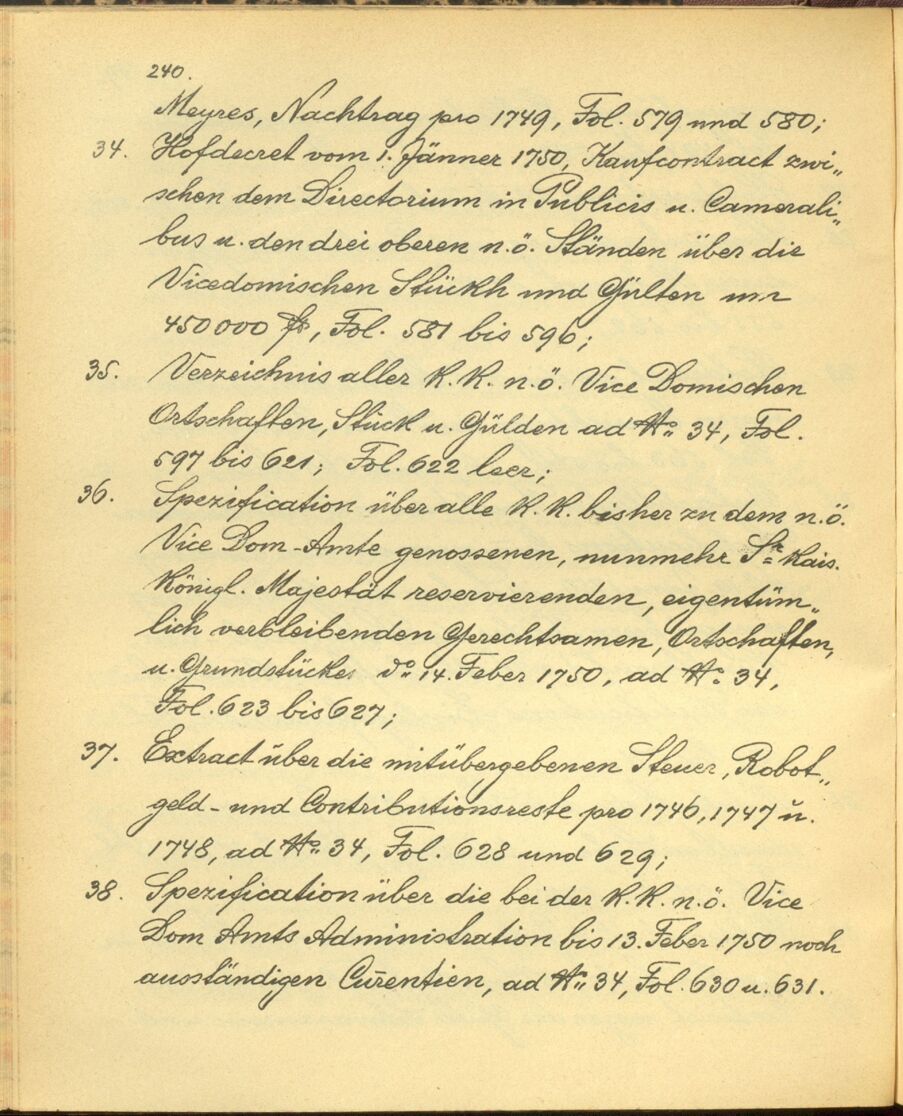 240.
Meyres, Nachtrag pro 1749, Fol. 579 und 580;
34. Hofdecret vom 1. Jänner 1750, Kaufcontract zwi„
schen dem Directorium in Publicis u. Camerali„
bus u. den drei oberen n.ö. Ständen über die
Vicedomischen Stückh und Gülten um
450000 fr, Fol. 581 bis 596;
35. Verzeichnis aller K.K. n.ö. Vice Domischen
Ortschaften, Stück u. Gülden ad No„ 34, Fol.
597 bis 621; Fol. 622 leer;
36. Spezification über alle K.K. bisher zu dem n.ö.
Vice Dom-Amte genossenen, nunmehr Sr= Kais.
Königl. Majestät reservierenden, eigentüm„
lich verbleibenden Gerechtsamen, Ortschaften,
u. Grundstücke do„ 14. Feber 1750, ad No. 34,
Fol. 623 bis 627;
37. Extract über die mitübergebenen Steuer, Robot„
geld- und Contributionsreste pro 1746, 1747 u.
1748, ad No„ 34, Fol. 628 und 629;
38. Spezification über die bei der K.K. n.ö. Vice
Dom Amts Administration bis 13. Feber 1750 noch
ausständigen Cur̄entien, ad No„ 34, Fol. 630 u. 631.